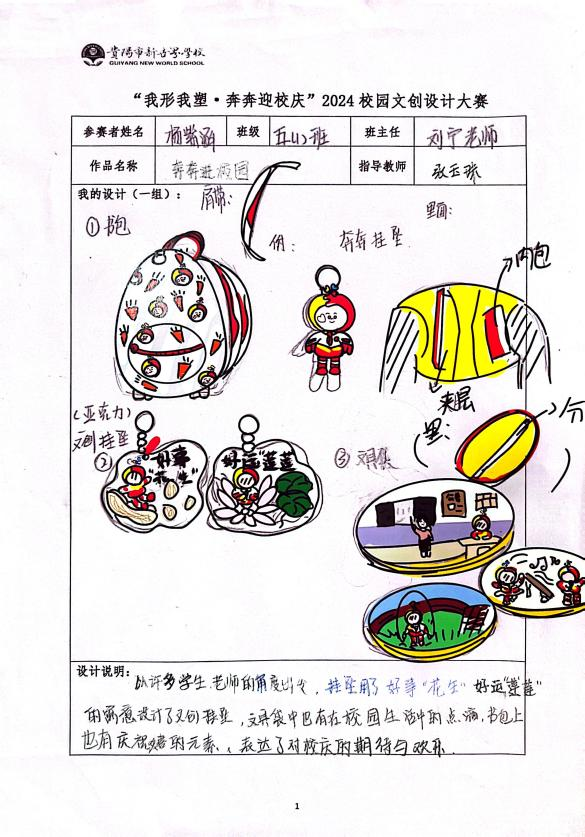 贵阳市新世界学校
GUIYANG NEW WORLD SCHOOL
“我形我塑·奔奔迎校庆”2024校园文创设计大赛
参赛者姓名 班级 五(1)班 班主任 刘宁老师
作品名称 奔奔进校园 指导教师
我的设计（一组）： 肩带：
里面：
①书包
奔奔挂坠
内包
夹层
(亚克力)
文创挂坠
里：
②
好事“花生”
好运“莲莲”
③
设计说明：
从许多学生、老师的角度出发，挂坠用了好事“花生”好运“莲莲”
的寓意设计了文创挂坠，文具袋中也有在校园生活中的点滴，书包上
也有庆祝的元素，表达了对校庆的期待与欢乐.
1